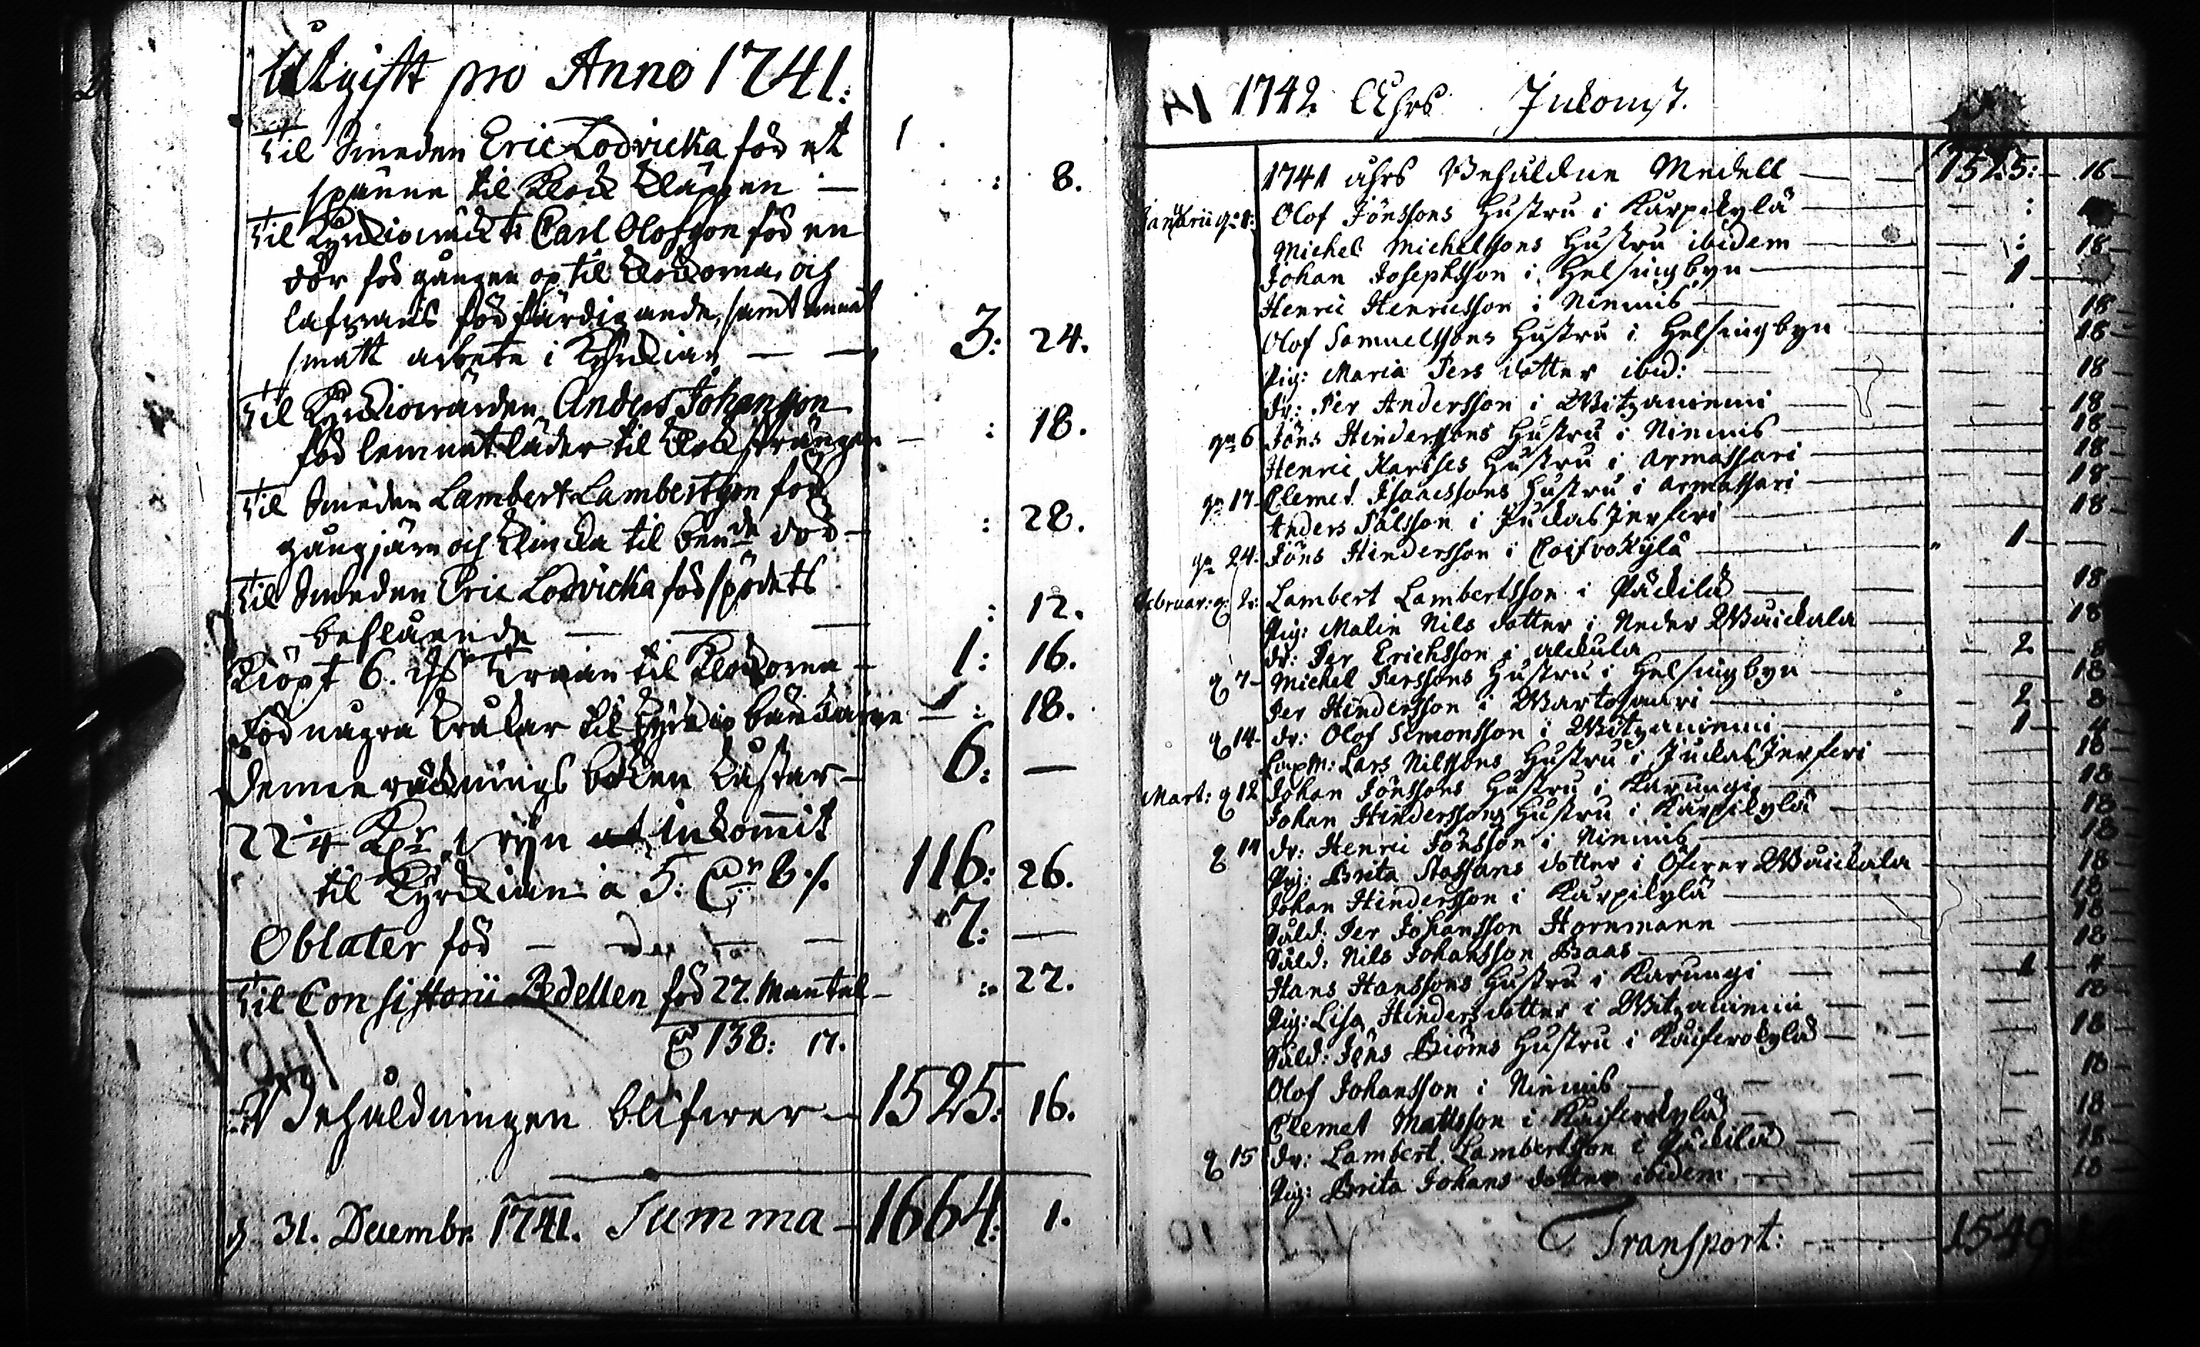 Utgift pro Anno 1741:
Til Smeden Eric Lodvicka för et
spänne til Klock kläppen — : 8.
Til Kyrkiowächt: Carl Olofzon för en
dör för gången op til klockorna, och
lafwans förfärdigande, samt annat
smått arbete i Kyrkian — — 3: 24.
Til Kyrkiowärden Anders Johanzon
för lemnat läder til Klocksträngen — : 18.
Til Smeden Lambert Lambertzon för
gångjärn och klincka til bem:de dör — : 28.
Til Smeden Eric Lodvicka för spödets
beslående — — — : 12.
Kiöpt 6. Traan til Klockorna — 1: 16.
För några krakar til Kyrkio bänckarne — : 18.
Denne räcknings boken kostar — 6: —
22¼ Kpr ryn inkommit
til Kyrkian a 5: 8 ./. 116: 26.
Oblater för — — — 7: —
Til Consistorii Bedellen för 22. Mantal — : 22.
138: 17.
Behåldningen blifwer — 1525: 16.
d. 31. Decembr. 1741. Summa — 1664: 1.
1742 Åhrs Inkomst.
1741 åhrs Behåldne Medell — 1525: 16
Olof Jönssons Hustru i Karpikylä — :
Michel Michelssons Hustru ibidem — : 18
Johan Josephsson i Helsingbyn — 1 —
Henric Henricsson i Niemis — 18
Olof Samuelssons Hustru i Helsingbyn — 18
Pig: Maria Pers dotter ibid: — 18
dr: Per Andersson i Witzaniemi — 18
6 Jöns Hinderssons Hustru i Niemis — 18
Henric Hustru i Armassari — 18
17 Clemet Isaacssons Hustru i Armassari — 18
Anders Pålsson i Juckas Jerferi — 18
24. Jöns Hindersson i — 1 —
Februar: 2: Lambert Lambertsson i Päckilä — 18
Pig: Malin Nils dotter i Neder Wuickala — 18
dr: Per Erichsson i Alckula — 2 8
7 Michel Perssons Hustru i Helsingbyn — 18
Per Hindersson i Wartosaari — 2 8
14 dr: Olof Simonsson i Witzaniemi — 1 4
Lars Nilssons Hustru i Juckas Jerferi — 18
Mart: 12 Johan Jönssons Hustru i Karungi — 18
Johan Hinderssons Hustru i Karpikylä — 18
14 dr: Henric Jönsson i Niemis — 18
Pig: Brita Staffans dotter i Öfwer Wuickala — 18
Johan Hindersson i Karpikylä — 18
Såld: Per Johansson Hornmann — 18
Såld: Nils Johansson Baas — 18
Hans Hanssons Hustru i Karungi — 1 4
Pig: Lisa Hinders dotter i Witzaniemi — 18
Såld: Jöns Biörns Hustru i — 18
Olof Johansson i Niemis — 18
Clemet Mattsson i — 18
15 dr: Lambert Lambertsson i Päckilä — 18
Pig: Brita Johans dotter ibidem — 18
Transport: — 1549